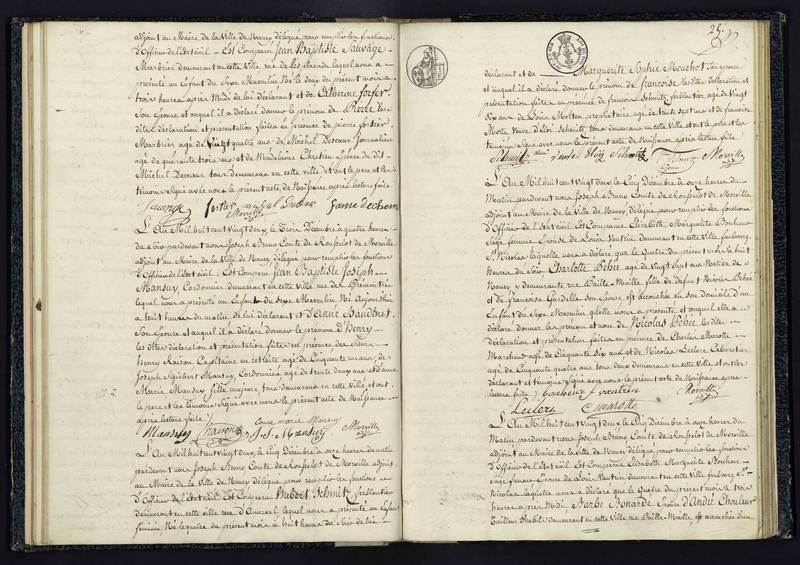 adjoint au Maire de la Ville de Nancy délégué pour remplir les fonctions
d'Officier de l'Etat civil - Est Comparu Jean Baptiste Sauvage
demeurant en cette Ville rue de lequel nous a
présenté un Enfant du Sexe Masculin Né le deux du présent mois à
trois heures après Midi de lui déclarant et de Catherine
Son Epouse et auquel il a déclaré donner le prénom de Pierre les
dites déclaration et présentation faites en présence de pierre fortier
agé de Vingt quatre ans de Michel Journalier
agé de quarante trois ans et de Madelaine Chretien Epouse du dit
Michel tous demeurant en cette ville et ont le pere et les
témoins signé avec nous le présent acte de Naissance après lecture faite
Sauvage fortier
Morville
L'An Mil huit cent Vingt deux, le Trois Décembre à quatre heures
du soir pardevant nous Joseph Bruno Comte de Rousselot de Morville
adjoint au Maire de la Ville de Nancy, délégué pour remplir les fonctions
d'Officier de l'Etat civil. Est Comparu Jean Baptiste Joseph
Mansuy, Cordonnier demeurant en cette Ville rue des
lequel nous a présenté un Enfant du Sexe Masculin Né Aujourd'hui
à huit heures du matin de lui déclarant et d'Anne Baudinet
Son Epouse et auquel il a déclaré donner le prénom d'Henry
les dites déclaration et présentation faites en présence des Sieurs
Henry Raison Capitaine en retraite agé de Cinquante un ans, de
Joseph Mansuy, Cordonnier agé de trente deux ans et d'anne
Marie Mansuy fille majeure, tous demeurant en cette Ville et ont
le pere et les témoins Signé avec nous le présent acte de Naissance
après lecture faite
Mansuy Raison anne marie Mansuy
J. S. Mansuy Morville
L'An Mil huit cent Vingt deux, le Cinq Décembre à onze heures du matin
pardevant nous Joseph Bruno Comte de Rousselot de Morville adjoint
au Maire de la Ville de Nancy délégué pour remplir les fonctions
d'Officier de l'Etat civil Est Comparu Hubert Schmitz ferblantier
demeurant en cette Ville rue lequel nous a présenté un Enfant
féminin, Né le quatre du présent mois à huit heures du Soir de lui
25.
déclarant et de Marguerite Sophie Mouchot Son épouse
et auquel il a déclaré donner le prénom de Françoise les dites déclaration et
présentation faites en présence de françois Schmitz, ferblantier, agé de Vingt
Six ans de Louis propriétaire agé de trente sept ans et de francoise
Veuve d'Eloi Schmitz, tous demeurant en cette Ville et ont le pere et les
témoins Signé avec nous le présent acte de Naissance après lecture faite
Schmitz Schmitz Morville
L'An Mil huit cent Vingt deux le Cinq Décembre à onze heures du
Matin pardevant nous Joseph Bruno Comte de Rousselot de Morville
adjoint au Maire de la Ville de Nancy, délégué pour remplir les fonctions
d'Officier de l'Etat civil Est Comparue Elisabeth Marguerite Bonheur
Sage femme Epouse de Louis Vautrin demeurant en cette Ville faubourg
St Nicolas laquelle nous a déclaré que le Quatre du présent mois à huit
heures du Soir Charlotte Béhée agé de Vingt sept ans Native de
Nancy y demeurante rue Paille-Maille, fille de défunt Nicolas Béhée
et de françoise Gardelle son épouse est accouchée en son domicile d'un
Enfant du Sexe Masculin qu'elle nous a présenté et auquel elle a
déclaré donner les prénom et nom de Nicolas Béhée les dites
déclaration et présentation faites en présence de Charles Marotte
Marchand agé de Cinquante Six ans et de Nicolas Leclerc Cabaretier
agé de Cinquante quatre ans tous deux demeurant en cette Ville et ont les
déclarante et témoins Signé avec nous le présent acte de Naissance après
lecture faite vautrin Morville
Leclerc Marotte
L'An Mil huit cent Vingt deux le Cinq Décembre à onze heures du
Matin, pardevant nous Joseph Bruno Comte de Rousselot de Morville
adjoint au Maire de la Ville de Nancy délégué pour remplir les fonctions
d'Officier de l'Etat civil Est Comparue Elisabeth Marguerite Bonheur
Sage femme Epouse de Louis Vautrin demeurant en cette Ville faubourg St
Nicolas laquelle nous a déclaré que le Quatre du présent mois à trois
heures après Midi Barbe Bonarde Epouse d'André Chouleur
Tailleur d'habits demeurant en cette Ville rue Paille Maille, est accouchée d'un